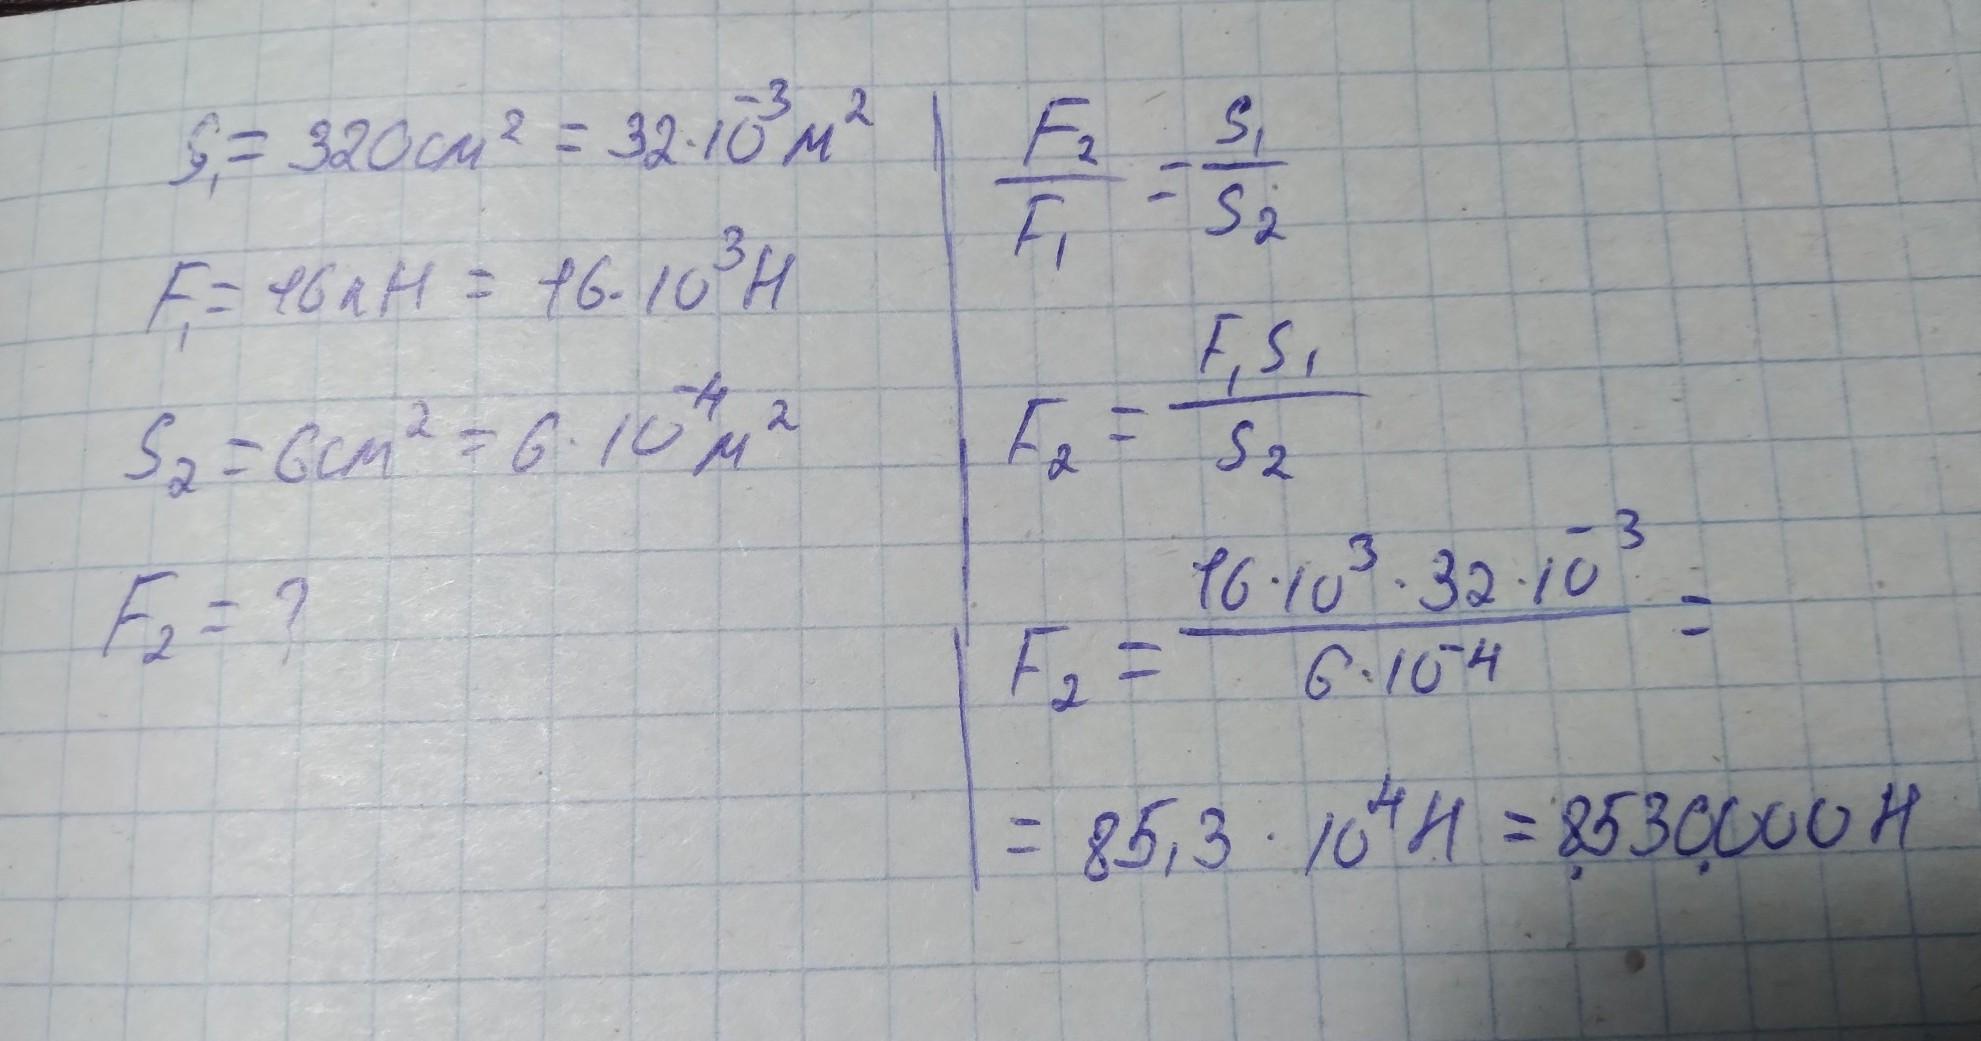 S₁ = 320см² = 32·10⁻³м²
F₁ = 16кН = 16·10³Н
S₂ = 6см² = 6·10⁻⁴м²
F₂ = ?
F₂/F₁ = S₁/S₂
F₂ = F₁S₁/S₂
F₂ = 16·10³·32·10⁻³/6·10⁻⁴ =
= 85,3·10⁴Н = 8530000Н